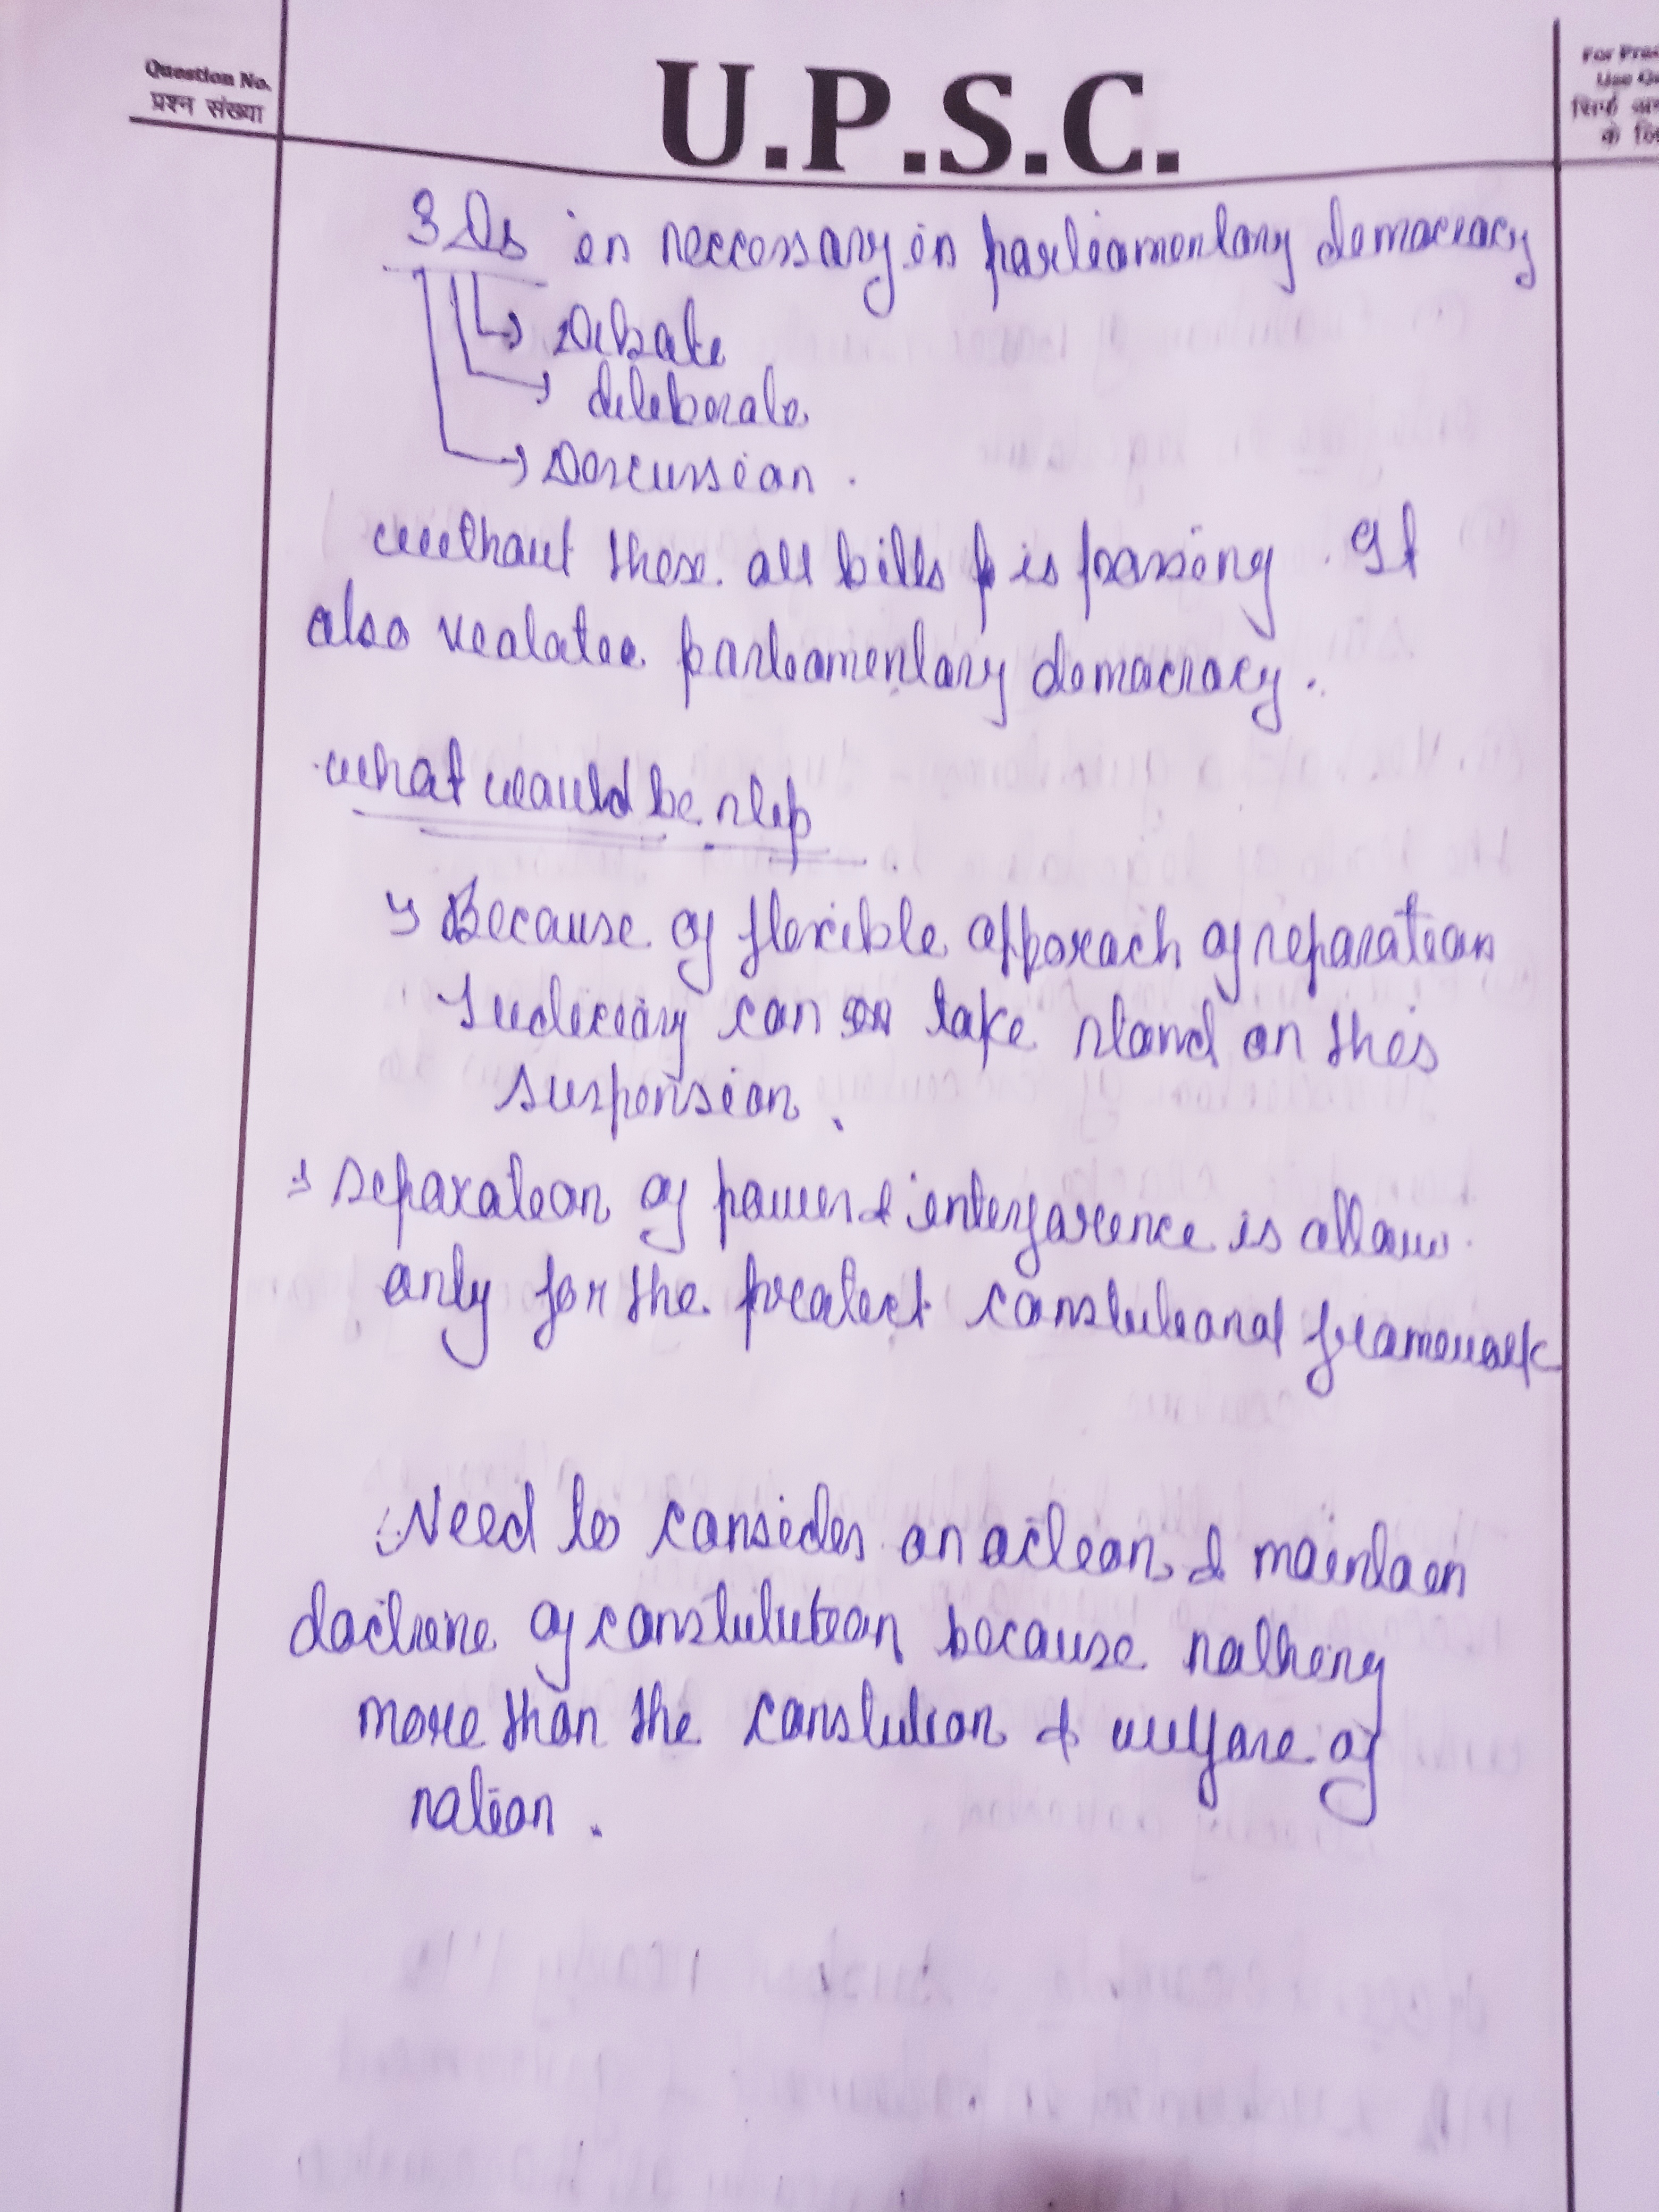 Question No.
प्रश्न संख्या
U.P.S.C.
For Prac
Use
सिर्फ
के
3 Ds is neccessary in parliamentary democracy
Debate
deleberate
Discussion.
without these all bills is passing. It
also vealatee parliamentary democracy.
what would be step
Because of flexible apporach of separation
Judiciary can take stand on this
suspension.
separation of power & interfarence is allow
only for the protect constutional framework
Need to consider an action & maintain
doctrine of constitution because nothing
more than the constution & welfare of
nation.